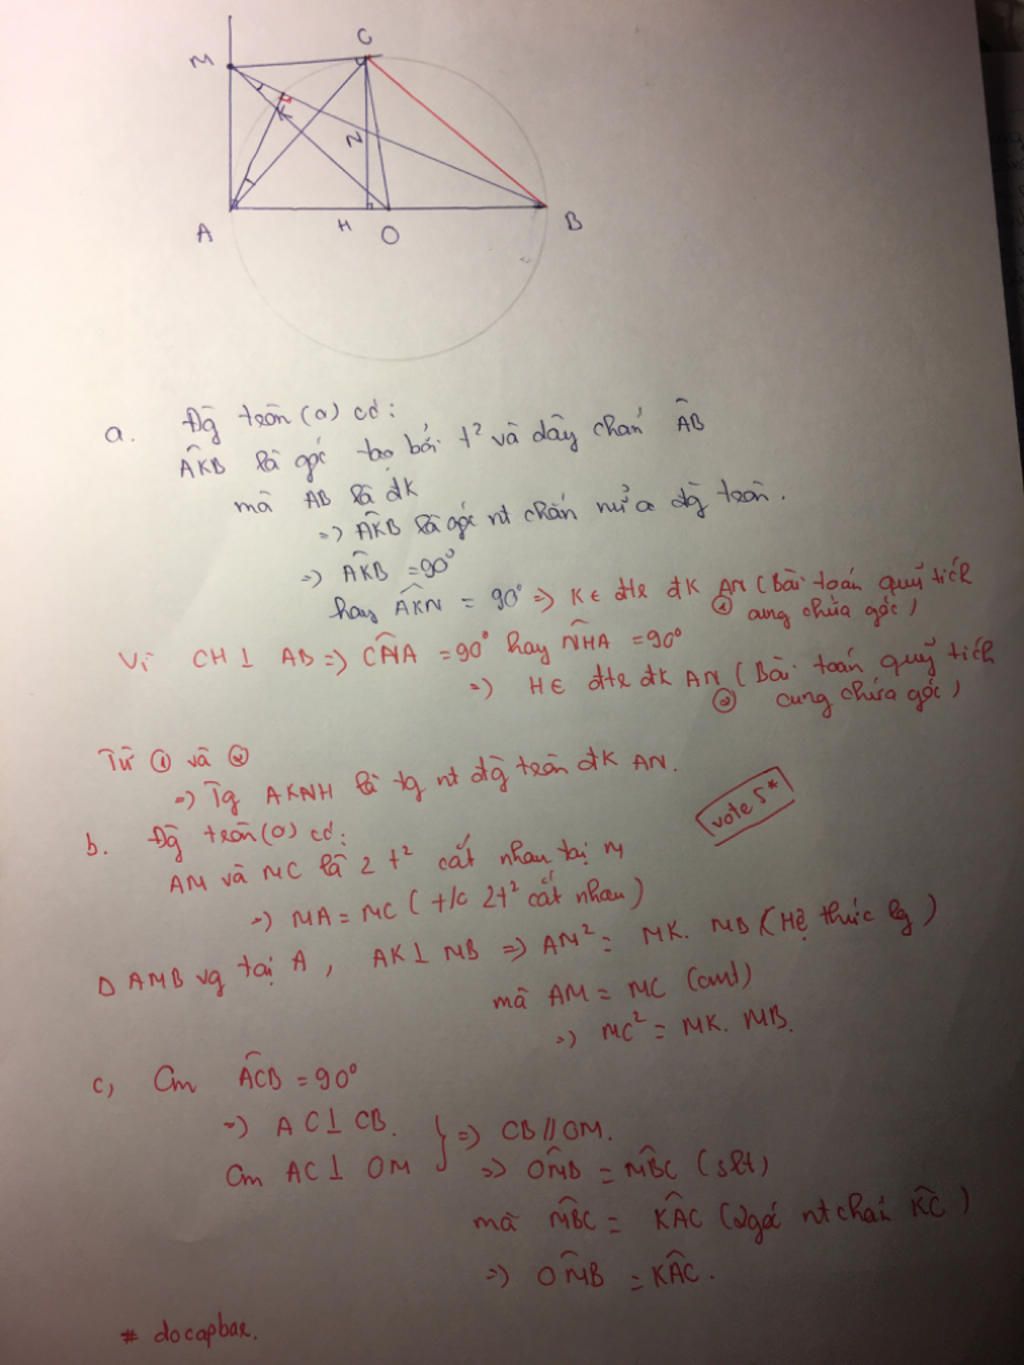 M
C
K
N
A
H
O
B
a. Đg tròn (O) có:
AKB là góc tạo bởi t² và dây chắn AB
mà AB là đk
=> AKB là góc nt chắn nửa đg tròn.
=> AKB = 90°
hay AKN = 90° => K ∈ đtr đk AN (Bài toán quỹ tích
① cung chứa góc)
Vì CH ⊥ AB => CHA = 90° hay NHA = 90°
=> H ∈ đtr đk AN (Bài toán quỹ tích
② cung chứa góc)
Từ ① và ②
=> Tg AKNH là tg nt đg tròn đk AN.
vote 5*
b. Đg tròn (O) có:
AM và MC là 2 t² cắt nhau tại M
=> MA = MC (t/c 2t² cắt nhau)
Δ AMB vg tại A, AK ⊥ MB => AM² = MK. MB (Hệ thức lg)
mà AM = MC (cmt)
=> MC² = MK. MB.
c, Cm ACB = 90°
=> AC ⊥ CB.
Cm AC ⊥ OM } => CB // OM.
=> OMB = MBC (slt)
mà MBC = KAC (2góc nt chắn KC)
=> OMB = KAC.
# docapbar.